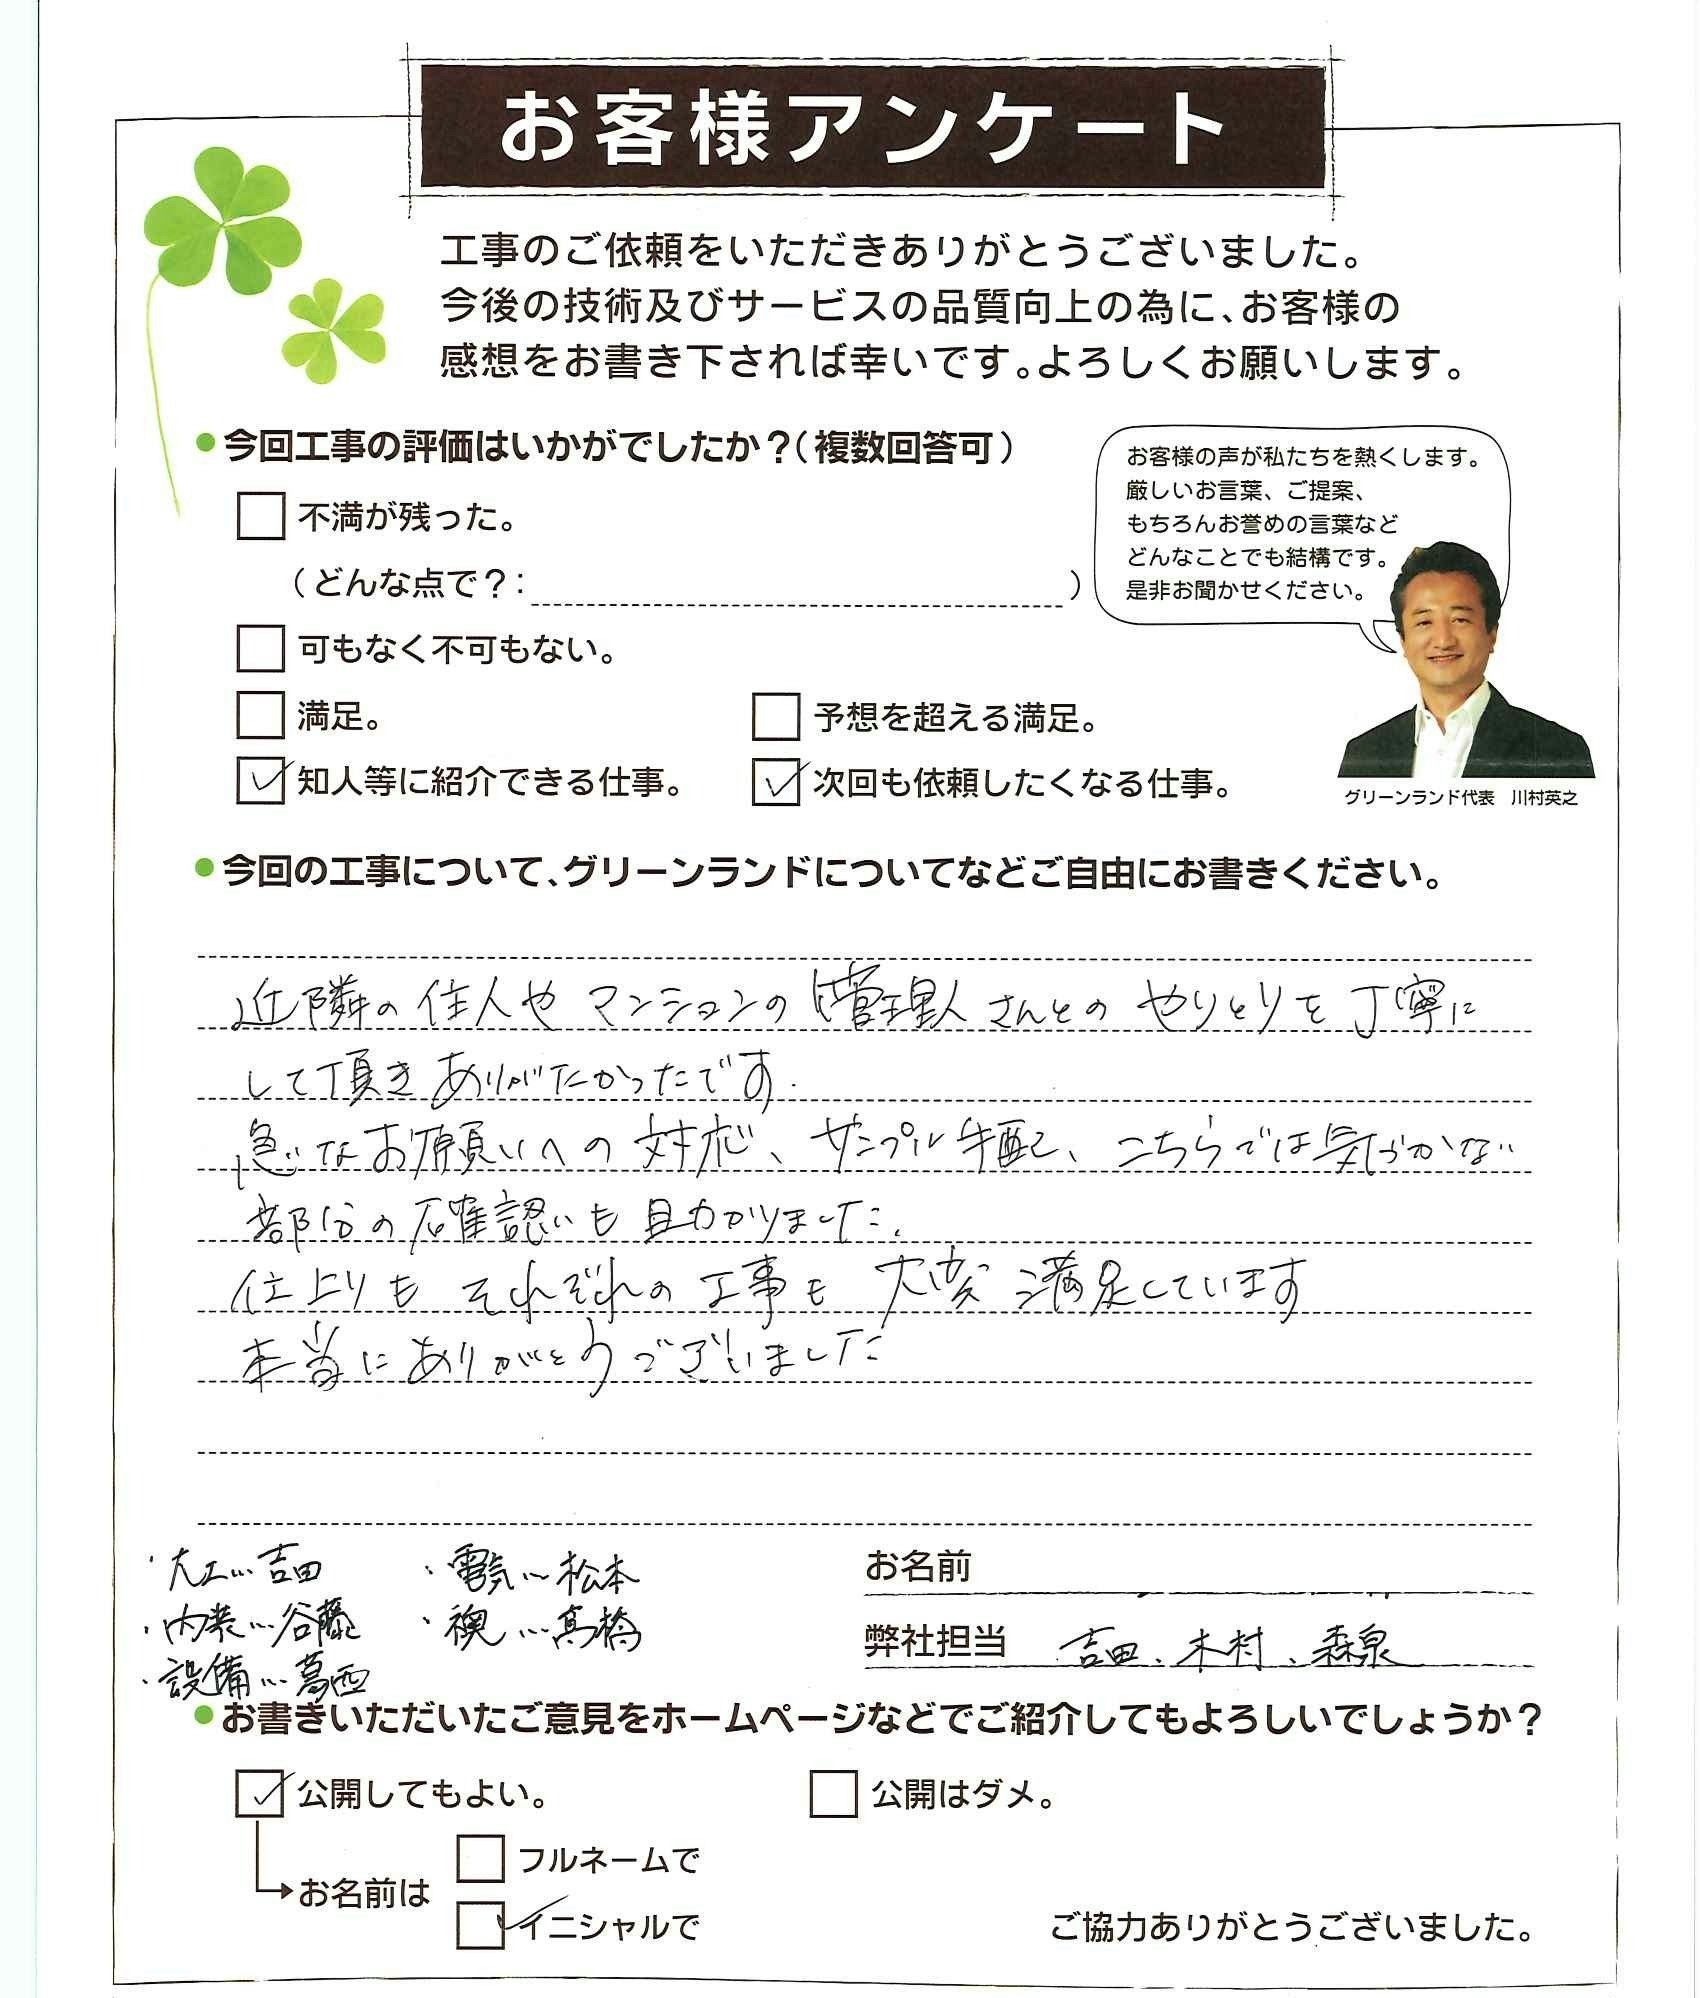 お客様アンケート
工事のご依頼をいただきありがとうございました。
今後の技術及びサービスの品質向上の為に、お客様の
感想をお書き下されば幸いです。よろしくお願いします。
●今回工事の評価はいかがでしたか？（複数回答可）
お客様の声が私たちを熱くします。
厳しいお言葉、ご提案、
もちろんお誉めの言葉など
どんなことでも結構です。
是非お聞かせください。
不満が残った。
（どんな点で？：　）
可もなく不可もない。
満足。　予想を超える満足。
知人等に紹介できる仕事。　次回も依頼したくなる仕事。
グリーンランド代表　川村英之
●今回の工事について、グリーンランドについてなどご自由にお書きください。
近隣の住人や マンションの管理人さんとの やりとりを丁寧に
して頂き ありがたかったです.
急なお願いへの対応、サンプル手配、こちらでは気づかない
部分の確認も助かりました.
仕上りも それぞれの工事も 大変満足しています
本当にありがとうございました
・大工…吉田　・電気…松本
・内装…谷藤　・襖…高橋
・設備…葛西
お名前
弊社担当　吉田、木村、森泉
●お書きいただいたご意見をホームページなどでご紹介してもよろしいでしょうか？
公開してもよい。　公開はダメ。
お名前は
フルネームで
イニシャルで
ご協力ありがとうございました。